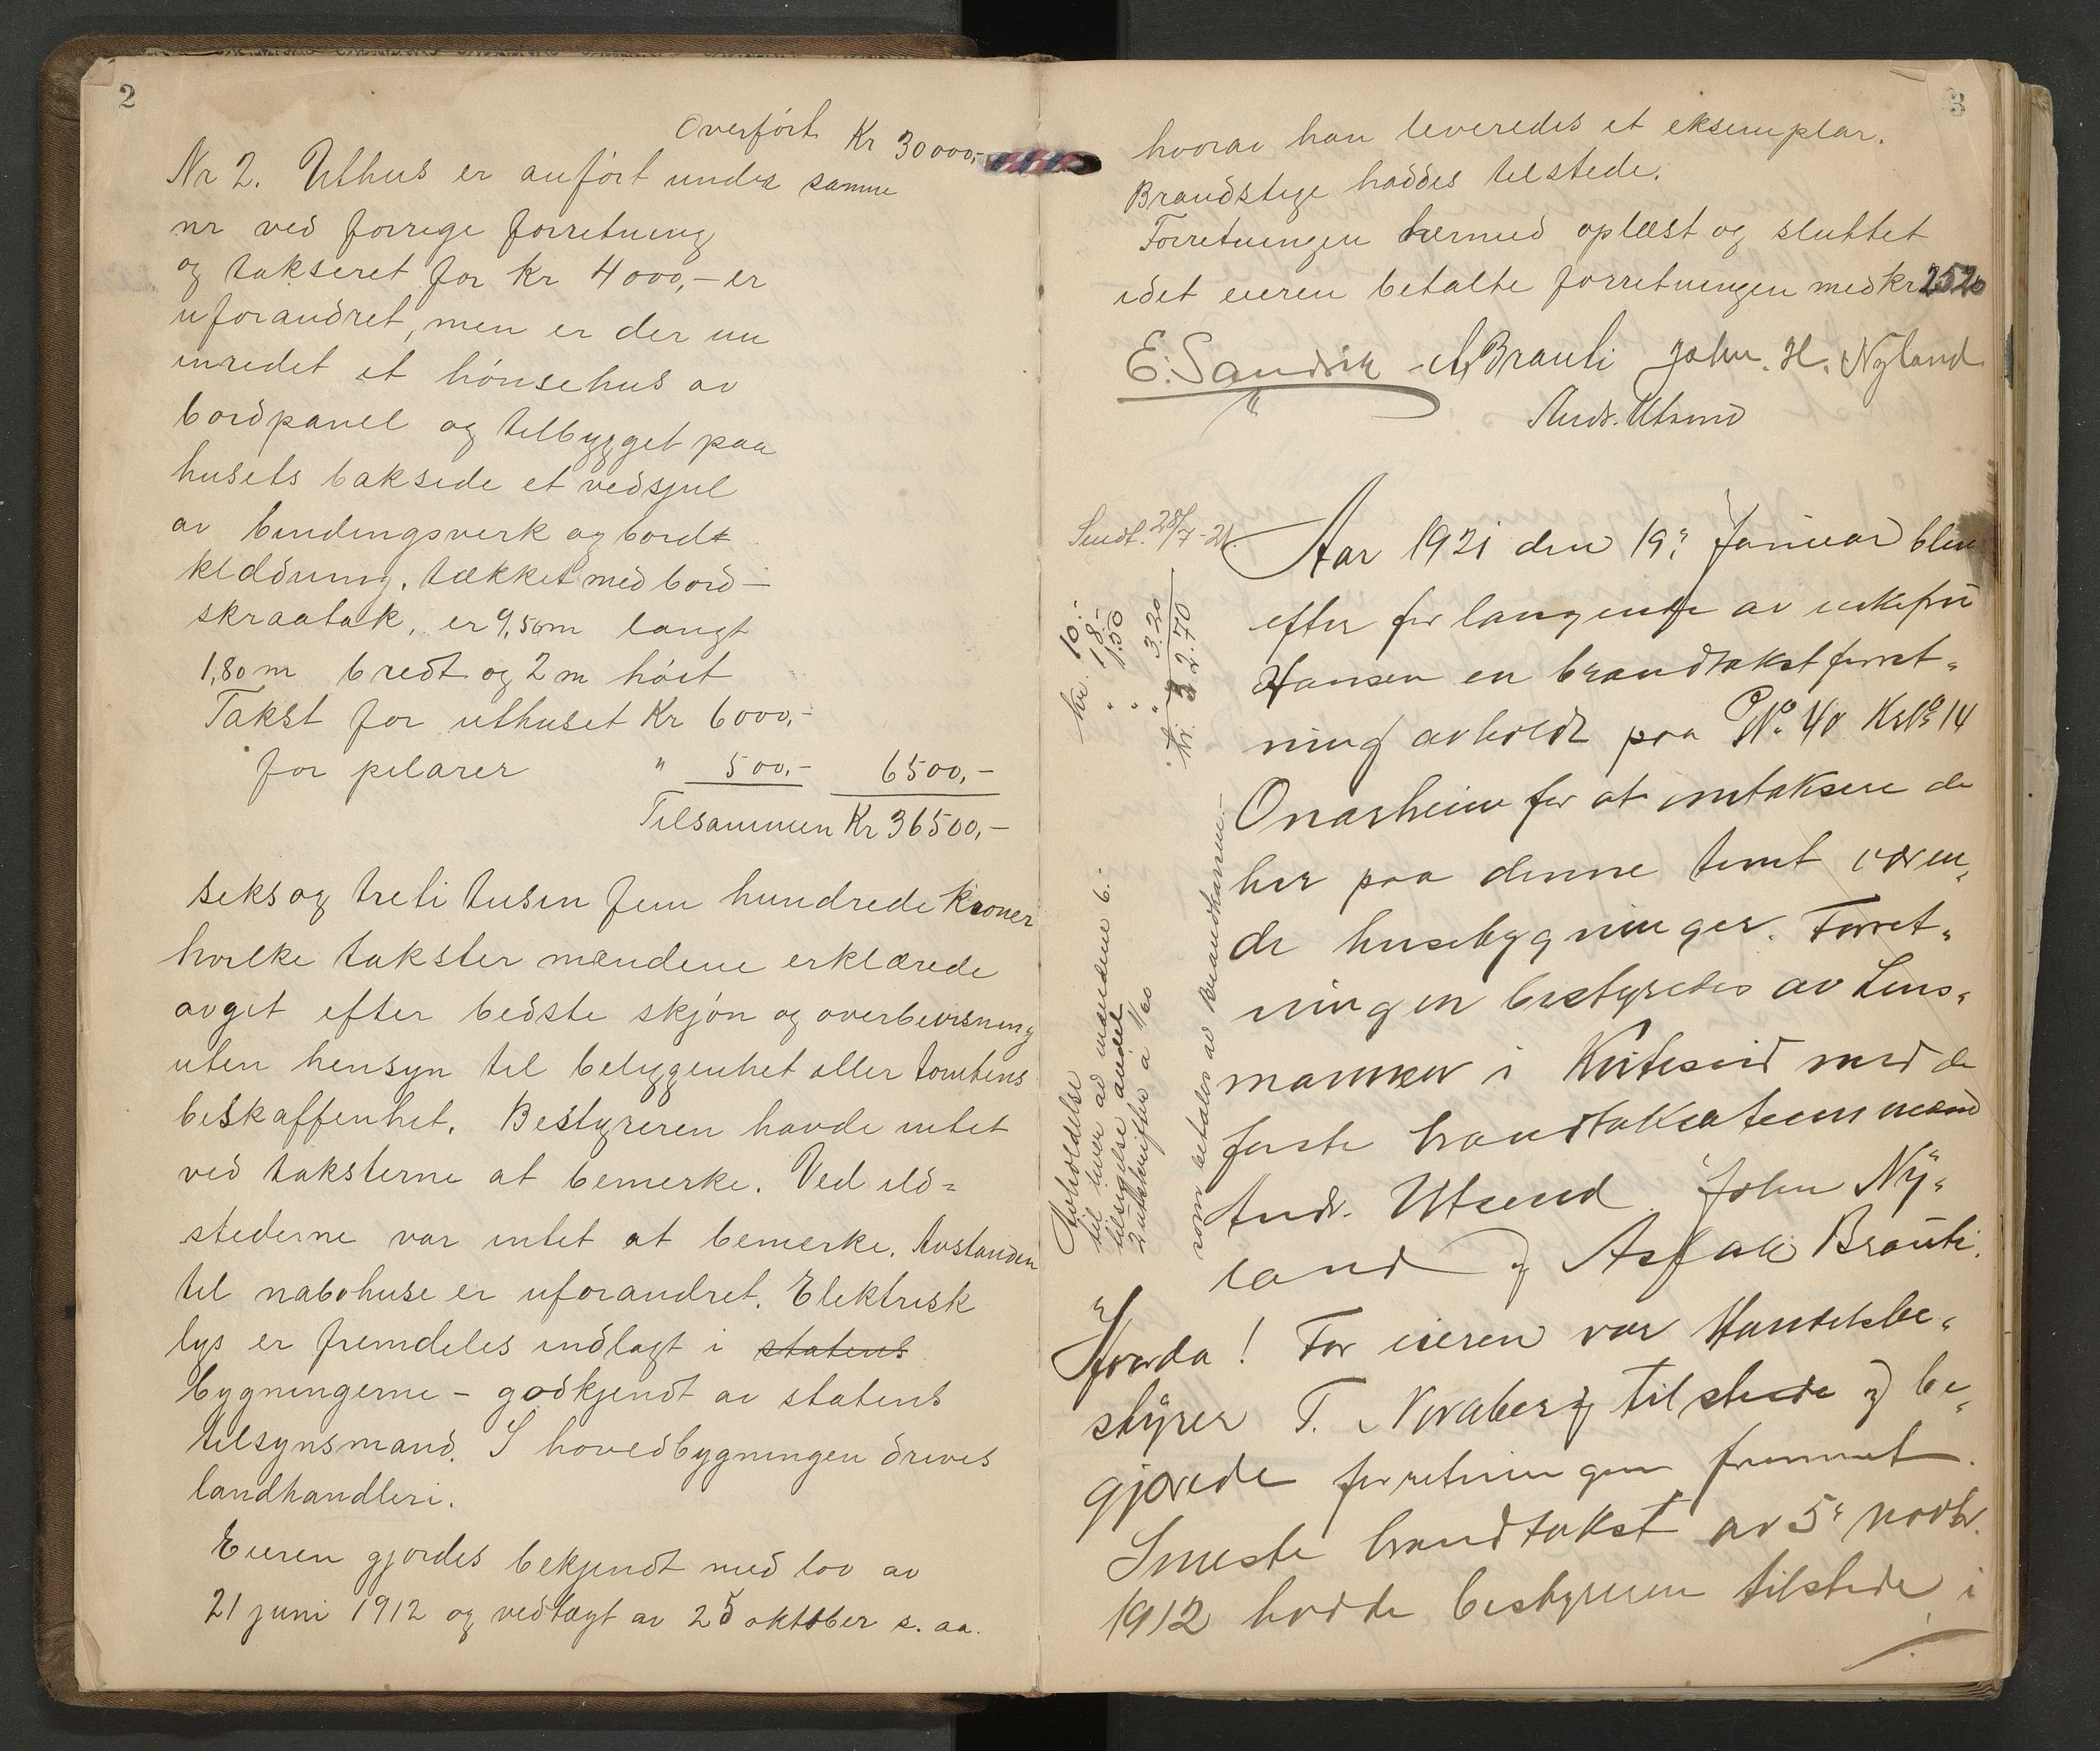 2
Overført Kr 30000,-
Nr 2. Uthus er anført under samme
nr ved forrige forretning
og takseret for Kr 4000,- er
uforandret, men er der nu
inredet et hønsehus av
bordpanel og tilbygget paa
husets bakside et vedsjul
av bindingsverk og bord
klædning, tækket med bord-
skraatak, er 9,50m langt
1,80 m bredt og 2 m høit
Takst for uthuset Kr 6000,-
for pilarer " 500,- 6500,-
Tilsammen Kr 36500,-
seks og treti tusen fem hundrede Kroner
hvilke takster mændene erklærede
avgit efter bedste skjøn og overbevisning
uten hensyn til beliggenhet eller tomtens
beskaffenhet. Bestyreren havde intet
ved taksterne at bemerke. Ved ild=
stederne var intet at bemerke. Avstanden
til nabohuse er uforandret. Elektrisk
lys er fremdeles indlagt i statens
bygningerne - godkjendt av statens
tilsynsmand. I hovedbygningen drives
landhandleri.
Eieren gjordes bekjendt med lov av
21 juni 1912 og vedtægt av 25 oktober s. aa.
3
hvorav han leveredes et eksemplar.
Brandstige haddes tilstede.
Forretningen hermed oplæst og sluttet
idet eieren betalte forretningen med kr 25 20
E. Sandvik A. Brauti John. H. Nyland
Andr. Utsund
Sendt. 28/7-21.
Aar 1921 den 19. Januar blev
efter forlangende av enkefru
Hansen en brandtakstforret-
ning avholdt paa No. 40 Kr No 14
Onarheim for at omtaksere de
her paa denne tomt væren-
de husebygninger. Forret-
ningen bestyredes av Lens-
manden i med de
faste brandtakstationsmænd
Andr. Utsund John Ny-
land og Asflak Brauti.
Hvorda! For eieren var Handelsbe-
styrer T. Noraberg tilstede og be-
gjærede forretningen fremmet.
Sidste brandtakst av 5. novbr.
1912 hadde bestyreren tilstede i
kr. 10.-
" 18.-
" 1.50
" 3.20
kr. 32.70
Avholdelse
til hver av mændene 6.-
tilsigelse andel
2 utskrifter a 1/60
som betales av Brandkassen.-